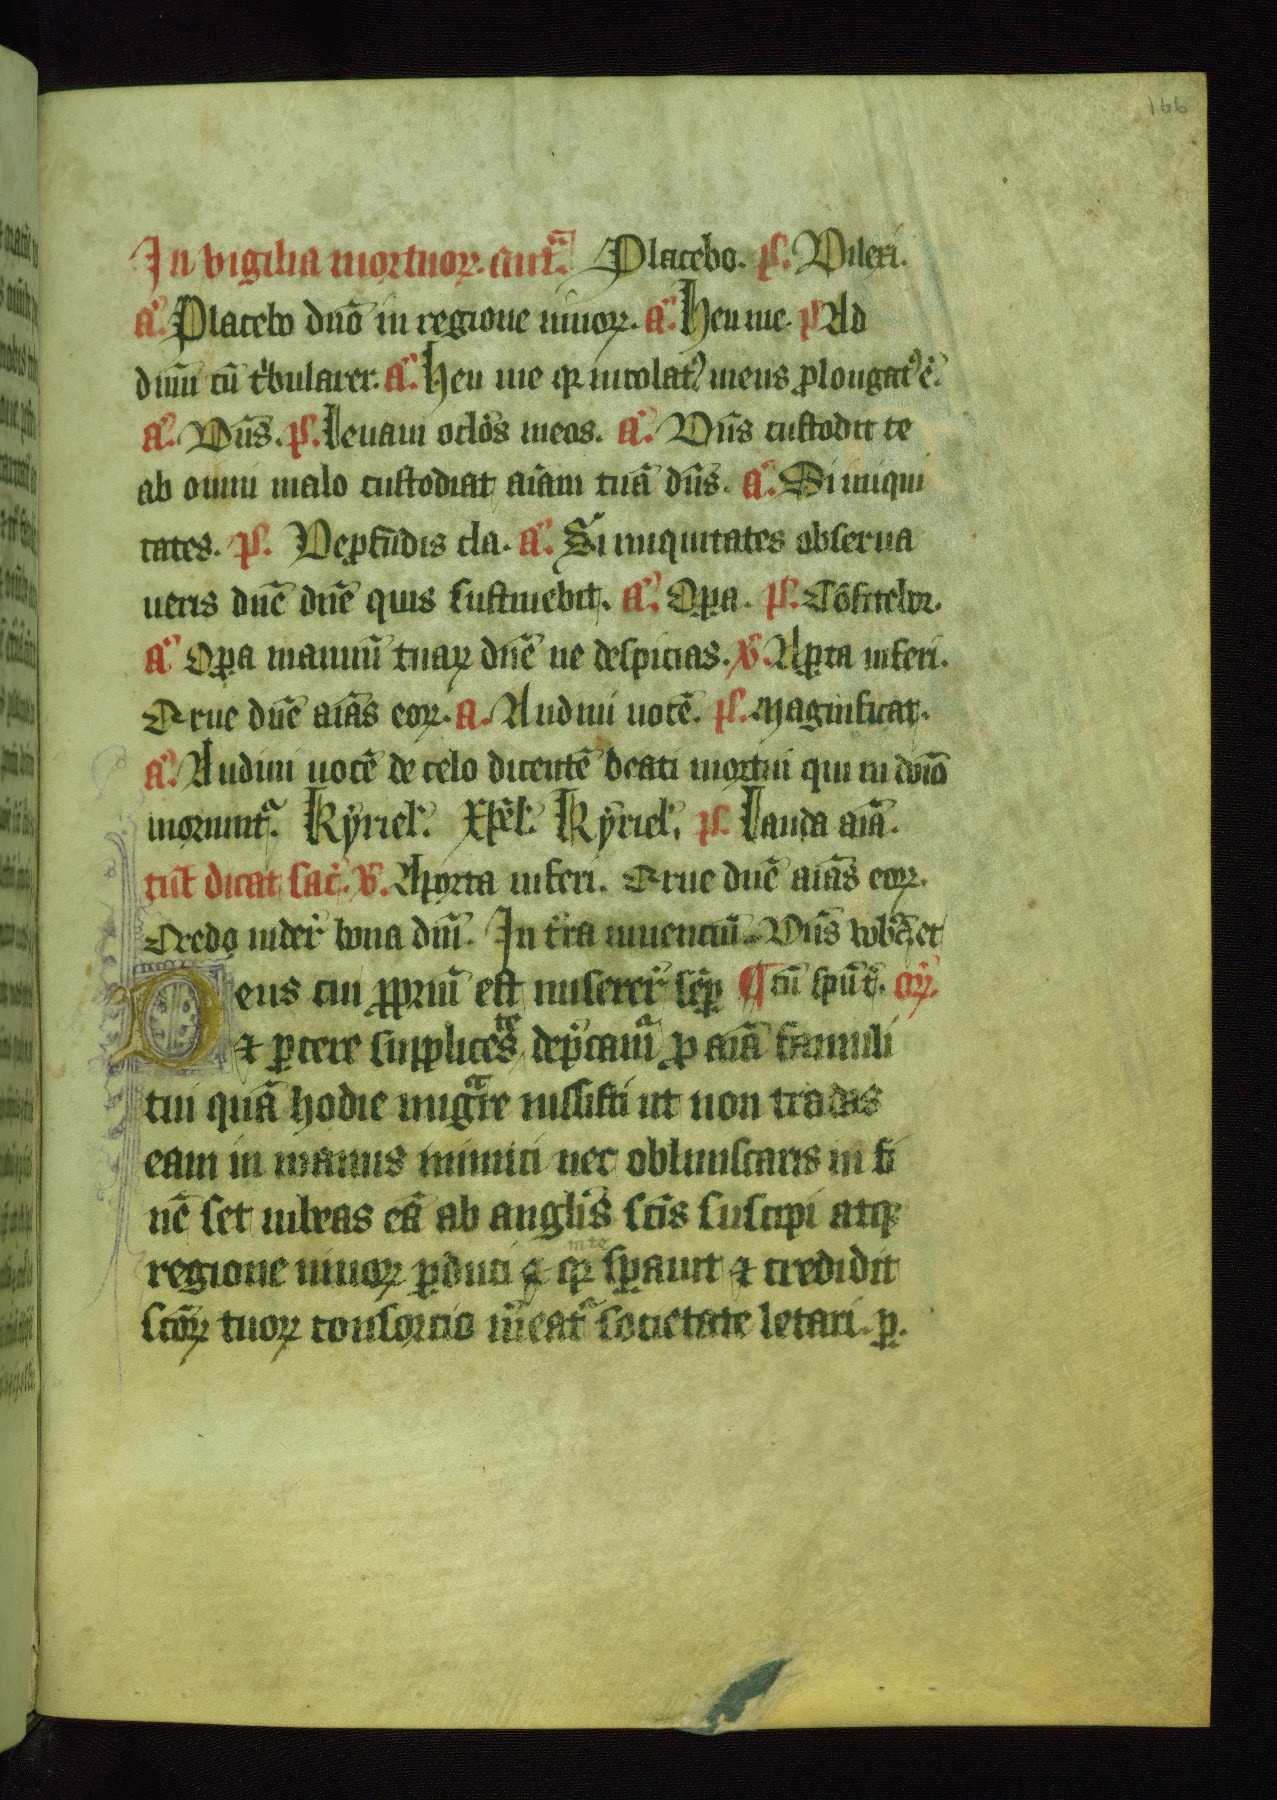 166
In vigilia mortuoꝝ. ant̃. Placebo. p̃s. Dilexi.
a᷑. Placebo dn̄o in regione uiuoꝝ. a᷑. Heu me. p̃s Ad
dn̄m cū t̾bularer. a᷑. Heu me qꝛ incolat᷒ meus ꝓlongat᷒ ē.
a᷑. Dn̄s. p̃s. Leuaui oc̄los meos. a᷑. Dn̄s custodit te
ab omni malo custodiat aīam tuā dn̄s. a᷑. Si iniqui
tates. p̃s. De ꝓfūdis cla. a᷑. Si iniquitates obserua
ueris dn̄e dn̄e quis sustinebit. a᷑. Oꝑa. p̃s. Cōfitebor.
a᷑ Oꝑa manuū tuaꝝ dn̄e ne despicias. v̾. A ꝑta inferi.
Erue dn̄e aīas eoꝝ. a. Audiui uocē. p̃s. Magnificat.
a᷑. Audiui uocē de celo dicentē beati mortui qui in dn̄o
moriunt᷑. Kyriel̾. Xp̄el̾. Kyriel̾. p̃s. Lauda aīa.
cūt dicat sac̾. v̾. A porta inferi. Erue dn̄e aīas eoꝝ.
Credo uider̾ bona dn̄i. In t̾ra uiuenciū. Dn̄s vobc̄. et
Deus cui ꝓpriū est miserer̾ sēꝑ ¶ cū spū t̾. or̾.
⁊ ꝑcere supplices te dep̄cam᷑ ꝓ aīa famuli
tui quā hodie migͣre iussisti ut non tradas
eam in manus inimici nec obliuiscaris in fi
nē set iubeas eā ab angl̄is sc̄is suscipi atqꝫ
regione uiuoꝝ ꝑduci ⁊ qꝛ in te sꝑauit ⁊ credidit
sc̄oꝝ tuoꝝ consorcio m̾eat᷑ societate letari. ꝑ.